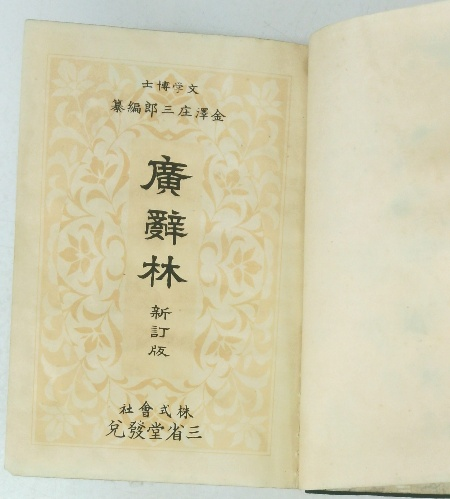 文学博士
金澤庄三郎編纂
廣辭林
新訂版
株式會社
三省堂發兌